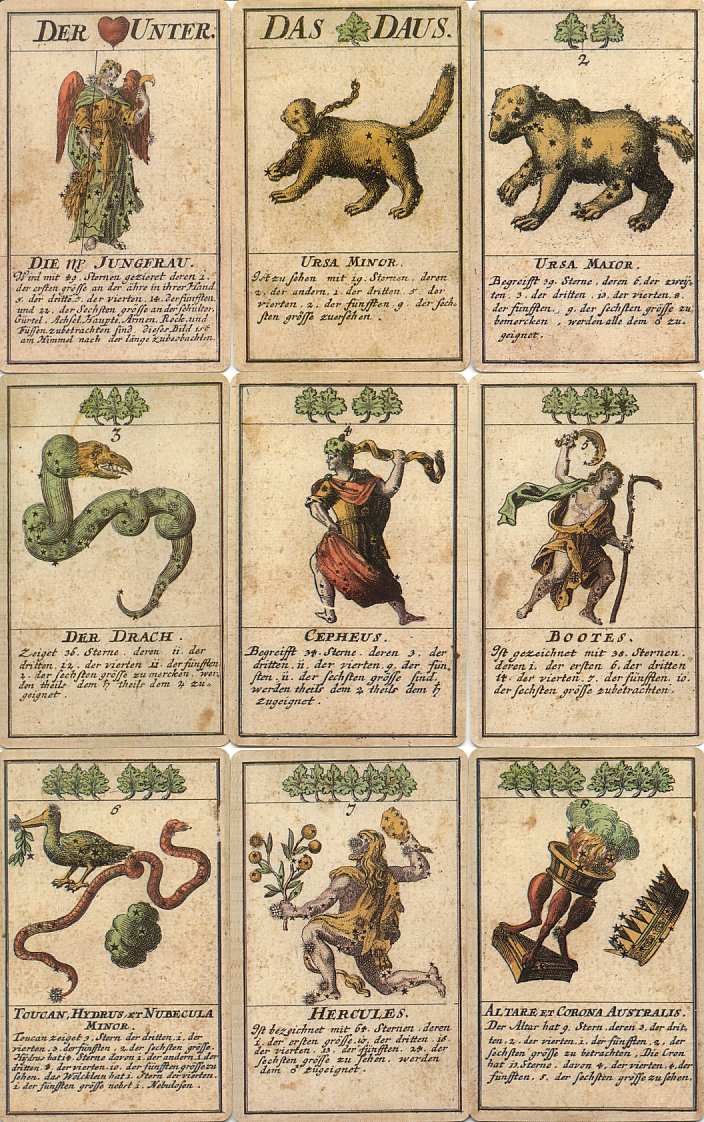 DER UNTER.
DIE ♍ JUNGFRAU.
Wird mit 49. Sternen gezieret deren 1.
der ersten grösse an der ähre in ihrer Hand
5. der dritte. der vierten. 14. der fünften.
und 22. der Sechsten grösse an der schulter,
Gürtel, Achsel, Haupte, Armen, Rock, und
Füssen zubetrachten sind. Dieses Bild ist
am Himmel nach der länge zubeobachten.
DAS DAUS.
URSA MINOR.
Ist zu sehen mit 19. Sternen, deren
2. der andern, 1. der dritten. 5. der
vierten, 2. der fünften 9. der sech-
sten grösse zuersehen.
2
URSA MAIOR.
Begreifft 39. Sterne, deren 6. der zwey-
ten. 3. der dritten, 13. der vierten. 8.
der fünfften, 9. der sechsten grösse zu
bemercken, werden alle dem ♂ zu-
geignet.
3
DER DRACH.
Zeiget 36. Sterne, deren 11. der
dritten, 12. der vierten 11. der fünfften
2. der sechsten grösse zu mercken, wer-
den theils dem ♄ theils dem ♃ zu-
geignet.
4
CEPHEUS.
Begreifft 34. Sterne, deren 3. der
dritten. 11. der vierten. 9. der fün-
ften. 11. der sechsten grösse sind,
werden theils dem ♃ theils dem ♄
zugeignet.
5
BOOTES.
Ist gezeichnet mit 38. Sternen.
deren 1. der ersten 6. der dritten
14. der vierten. 7. der fünfften. 10.
der sechsten grösse zubetrachten.
6
TOUCAN, HYDRUS, ET NUBECULA
MINOR.
Toucan zeiget 9. Stern der dritten, 1. der
vierten. 3. der fünfften, 2. der sechsten grösse.
Hydrus hat 14. Sterne davon 1. der andern 1. der
dritten. der vierten. 10. der fünfften grösse zu
sehen. das Wölcklein hat 1. Stern der vierten,
1. der fünfften grösse nebst 1. Nebulosen.
7
HERCULES.
Ist bezeichnet mit 64. Sternen, deren
1. der ersten grösse. 10. der dritten. 16.
der vierten. 13. der fünfften. 24. der
sechsten grösse zu sehen. werden
dem ♂ zugeignet.
8
ALTARE ET CORONA AUSTRALIS.
Der Altar hat 9. Stern, deren 3. der drit-
ten, 2. der vierten, 1. der fünfften, 2. der
sechsten grösse zu betrachten, Die Cron
hat 13. Sterne, davon 4. der vierten, 4. der
fünfften. 5. der sechsten grösse zu sehen.